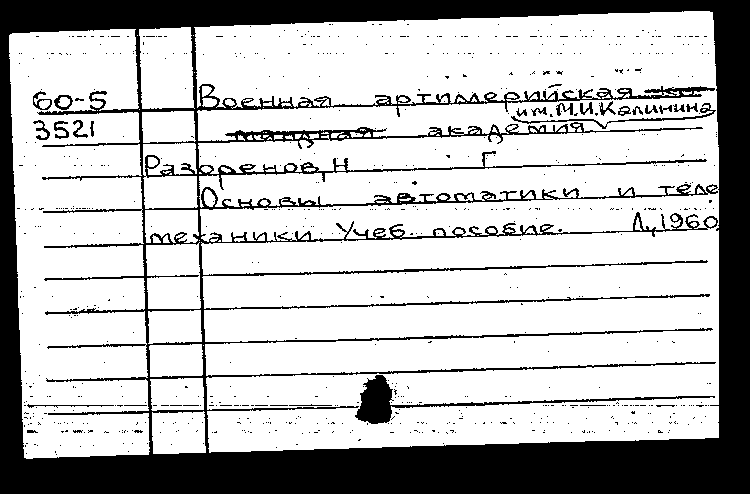 60-5 Военная артиллерийская
им. М.И.Калинина
3521 академия
Разоренов, Н Г
Основы автоматики и теле
механики. Учеб. пособие. Л., 1960